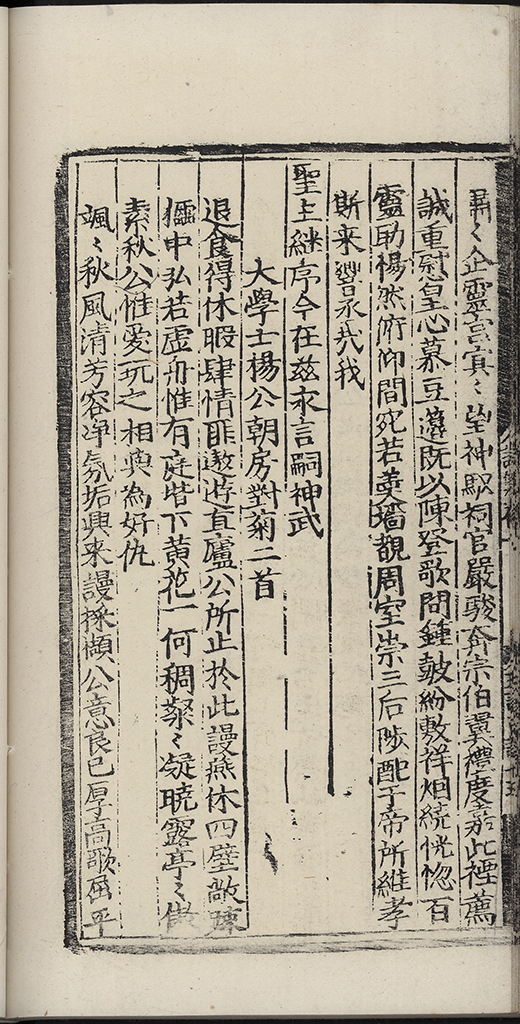 肅〻企靈宮寅〻望神馭祠官嚴駿奔宗伯冀禮度嘉此禋薦
誠重慰皇心慕豆籩既以陳登歌間鍾皷紛敷祥烟繞恍惚百
靈助楊然俯仰間宛若羹墻覩周室崇三后陟配于帝所維孝
斯来響承我
聖上継序今在兹永言嗣神武
大學士楊公朝房對菊二首
退食得休暇肆情匪遨遊直廬公所止於此謾燕休四壁敞踈
櫺中弘若虛舟惟有庭堦下黄花一何稠粲〻凝曉露亭〻
素秋公惟愛玩之相與為好仇
颯〻秋風清芳容淨氛垢興来謾採擷公意良已厚高歌屈平